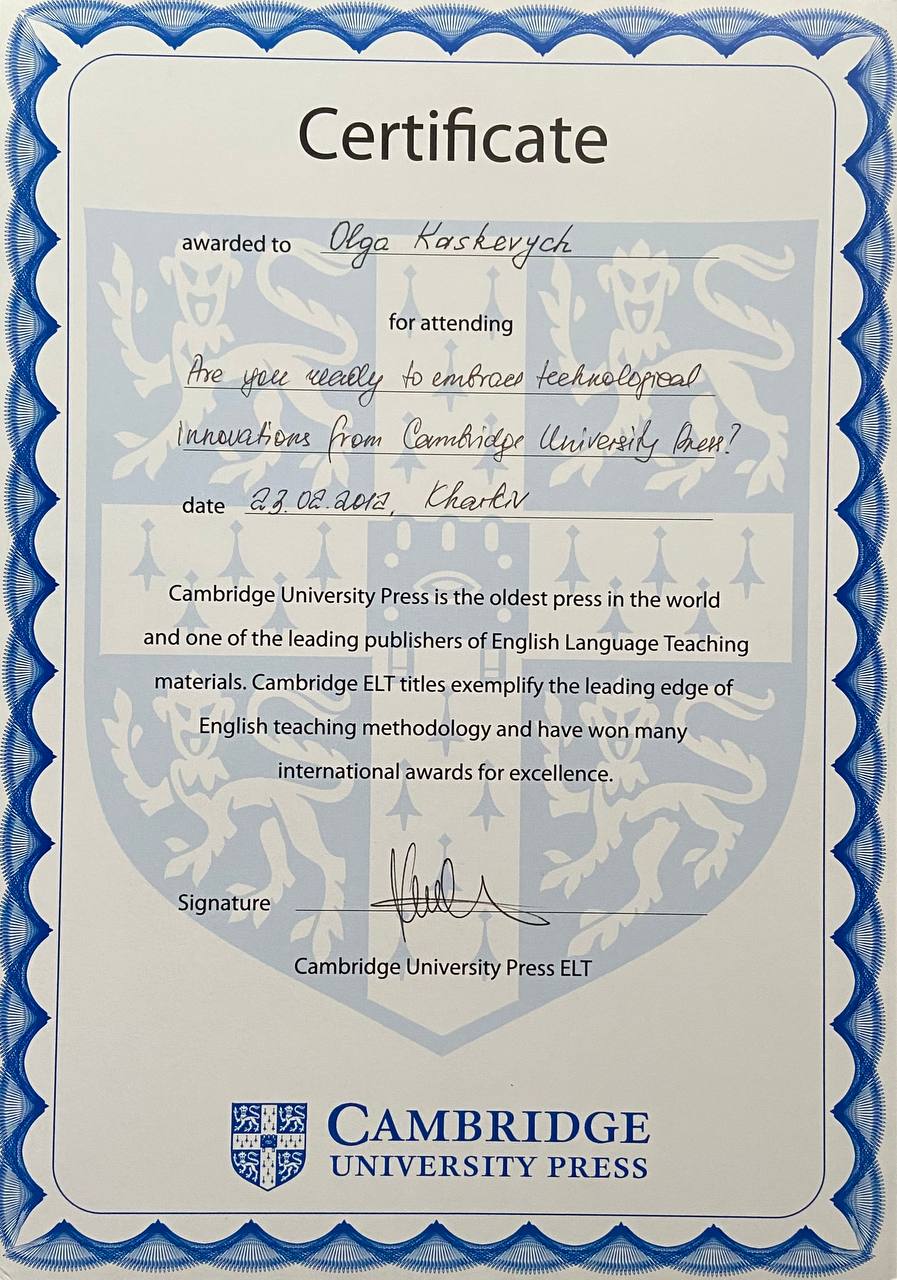 Certificate
awarded to Olga Kaskevych
for attending
Are you ready to embrace technological
innovations from Cambridge University Press?
date 23.02.2012, Kharkiv
Cambridge University Press is the oldest press in the world
and one of the leading publishers of English Language Teaching
materials. Cambridge ELT titles exemplify the leading edge of
English teaching methodology and have won many
international awards for excellence.
Signature
Cambridge University Press ELT
CAMBRIDGE
UNIVERSITY PRESS